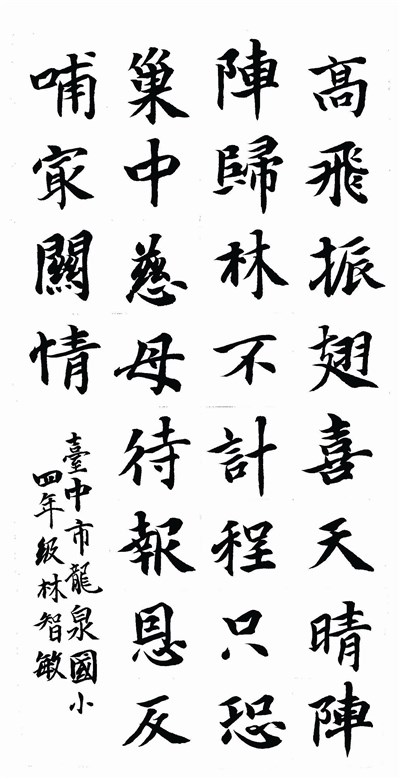 高飛振翅喜天晴陣
陣歸林不計程只恐
巢中慈母待報恩反
哺㝡關情
臺中市龍泉國小
四年級林智敏